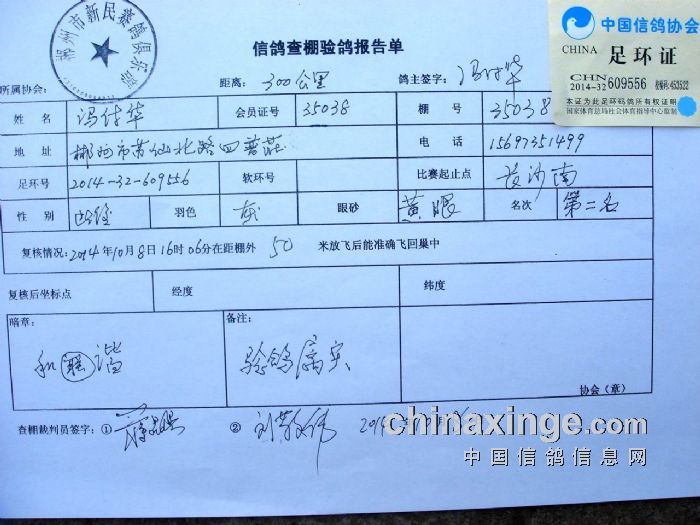 郴州市新民赛鸽俱乐部
中国信鸽协会
CHINA 足环证
CHN
2014-32 609556
本证为此足环鸽所有权证明
国家体育总局社会体育指导中心监制
信鸽查棚验鸽报告单
所属协会: 距离: 300公里 鸽主签字: 冯付华
姓名 冯付华 会员证号 35038 棚号 35038
地址 郴州市苏仙北路四普庄 电话 15697351499
足环号 2014-32-609556 软环号 比赛起止点 长沙南
性别 雌 羽色 灰 眼砂 黄眼 名次 第二名
复核情况: 2014年10月8日16时06分在距棚外 50 米放飞后能准确飞回巢中
复核后坐标点 经度 纬度
暗章: 备注:
和 谐 验鸽属实
协会(章)
查棚裁判员签字: ① ② 刘敬伟
chinaxinge.com
中国信鸽信息网